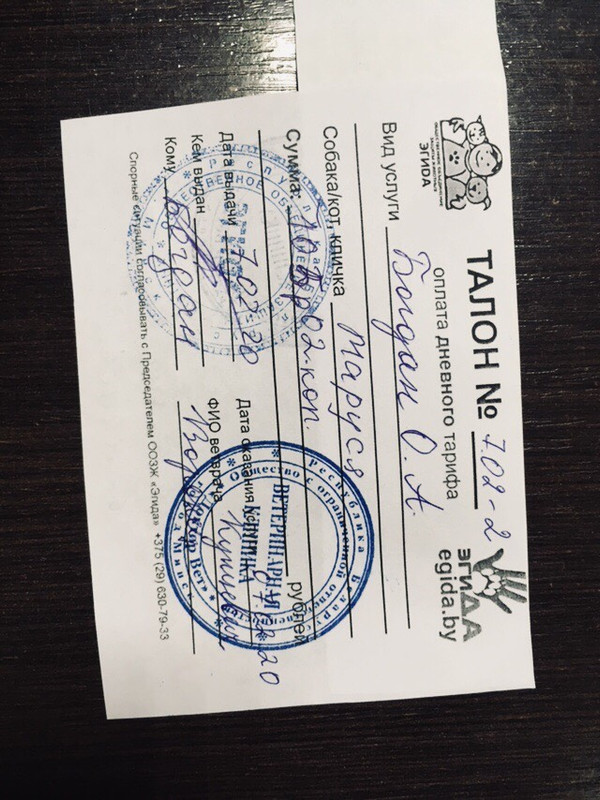 ОБЩЕСТВЕННОЕ ОБЪЕДИНЕНИЕ
ЗАЩИТЫ ЖИВОТНЫХ
ЭГИДА
ТАЛОН № 7.02-2
оплата дневного тарифа
эгиДА
egida.by
Вид услуги Богдан О. А.
Собака/кот, кличка Маруся
Сумма: 20 02 коп. рублей
Дата выдачи 7.02.20
Дата оказания 07.02.20
Кем выдан
ФИО ветврача
Кому Богдан
Спорные ситуации согласовывать с Председателем ООЗЖ «Эгида» +375 (29) 630-79-33
Республика Беларусь
Общество с ограниченной ответственностью
ВЕТЕРИНАРНАЯ
КЛИНИКА
«Доктор Вет»
г. Минск